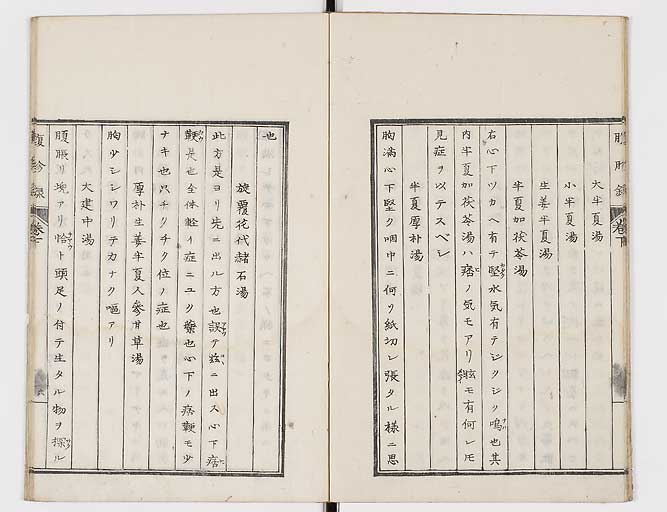 大半夏湯
小半夏湯
生姜半夏湯
半夏加茯苓湯
右心下ツカヘ有テ堅水気有テシクシク鳴也其
内半夏加茯苓湯ハ痞ノ気モアリ眩モ有何レモ
見症ヲ以テスベシ
半夏厚朴湯
胸満心下堅ク咽中ニ何ヲ紙切レ張タル様ニ思
也
旋覆花代赭石湯
此方是ヨリ先ニ出ル方也誤テ玆ニ出ス心下痞
鞕是也全体軽イ症ニユク薬也心下ノ痞鞕モ少
ナキ也只チクチク位ノ症也
厚朴生姜半夏人參甘草湯
胸少シシワリテカナク嘔アリ
大建中湯
腹脹リ塊アリ恰ト頭足ノ付テ生タル物ヲ探ル
腹診録
巻下
六